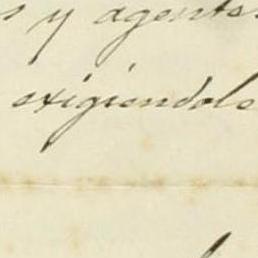 y agentes
exigiéndole